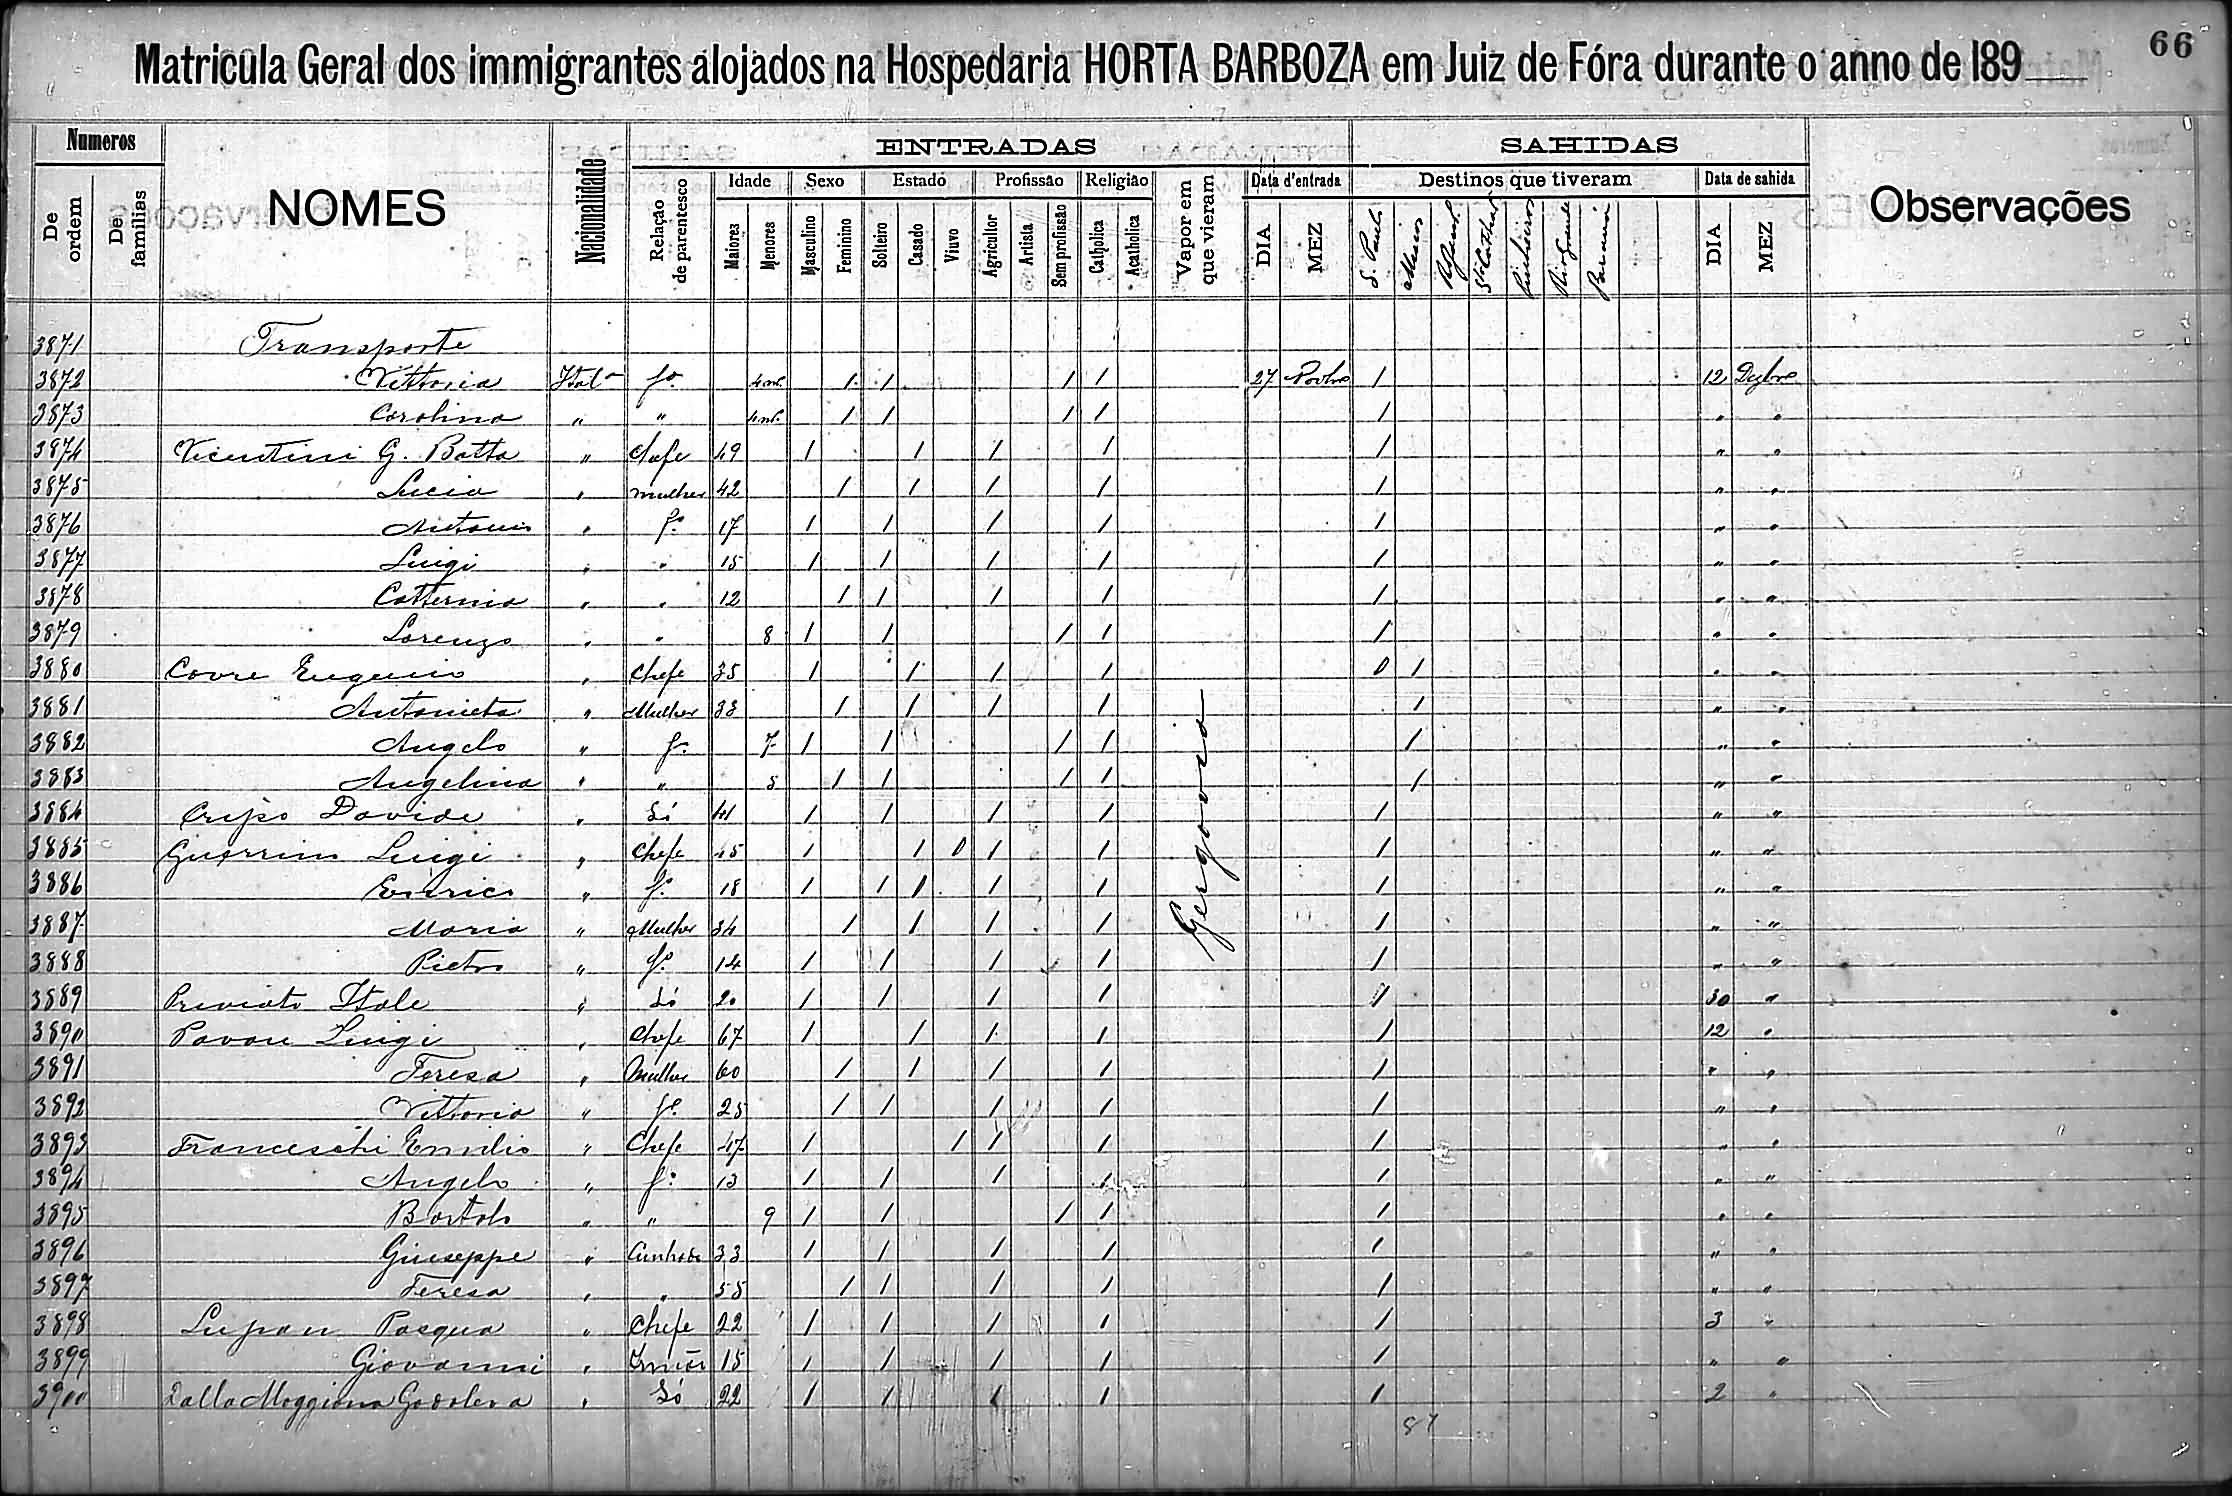 66
Matricula Geral dos immigrantes alojados na Hospedaria HORTA BARBOZA em Juiz de Fóra durante o anno de 189
Numeros
De ordem
De familias
NOMES
Nacionalidade
ENTRADAS
Relação de parentesco
Idade
Maiores
Menores
Sexo
Masculino
Feminino
Estado
Solteiro
Casado
Viuvo
Profissão
Agricultor
Artista
Sem profissão
Religião
Catholica
Acatholica
Vapor em que vieram
Data d'entrada
DIA
MEZ
SAHIDAS
Destinos que tiveram
S. Paulo
Minas
Pinheiros
Rio grande
Data de sahida
DIA
MEZ
Observações
3871 Transporte
3872 Vittoria Ital.a fa. 1 1 1 1 27 Novbro 1 12 Dezbro
3873 Carolina " " 1 1 1 1 1 " "
3874 Vicentini G. Batta " Chefe 49 1 1 1 1 1 " "
3875 Lucia " mulher 42 1 1 1 1 1 " "
3876 Antonio " fo. 17 1 1 1 1 1 " "
3877 Luigi " " 15 1 1 1 1 1 " "
3878 Catterina " " 12 1 1 1 1 1 " "
3879 Lorenzo " " 8 1 1 1 1 1 " "
3880 Covre Eugenio " Chefe 35 1 1 1 1 0 1 " "
3881 Antonieta " Mulher 33 1 1 1 1 1 " "
3882 Angelo " fo. 7 1 1 1 1 1 " "
3883 Angelina " " 1 1 1 1 1 " "
3884 Davide " Só 41 1 1 1 1 1 " "
3885 Guerrini Luigi " Chefe 45 1 1 0 1 1 1 " "
3886 Enrico " fo. 18 1 1 1 1 1 1 " "
3887 Maria " Mulher 34 1 1 1 1 1 " "
3888 Pietro " fo. 14 1 1 1 1 1 " "
3889 Previato Itale " Só 20 1 1 1 1 1 30 "
3890 Pavan Luigi " Chefe 67 1 1 1 1 1 12 "
3891 Teresa " Mulher 60 1 1 1 1 1 " "
3892 Vittoria " fa. 25 1 1 1 1 1 " "
3893 Franceschi Emilio " Chefe 47 1 1 1 1 1 " "
3894 Angelo " fo. 13 1 1 1 1 1 " "
3895 Bortolo " " 9 1 1 1 1 1 " "
3896 Giuseppe " Cunhado 33 1 1 1 1 1 " "
3897 Teresa " " 55 1 1 1 1 1 " "
3898 Lupan Pasqua " Chefe 22 1 1 1 1 1 3 "
3899 Giovanni " Irmão 15 1 1 1 1 1 " "
3900 Dalla " Só 22 1 1 1 1 1 2 "
Gergovia
87